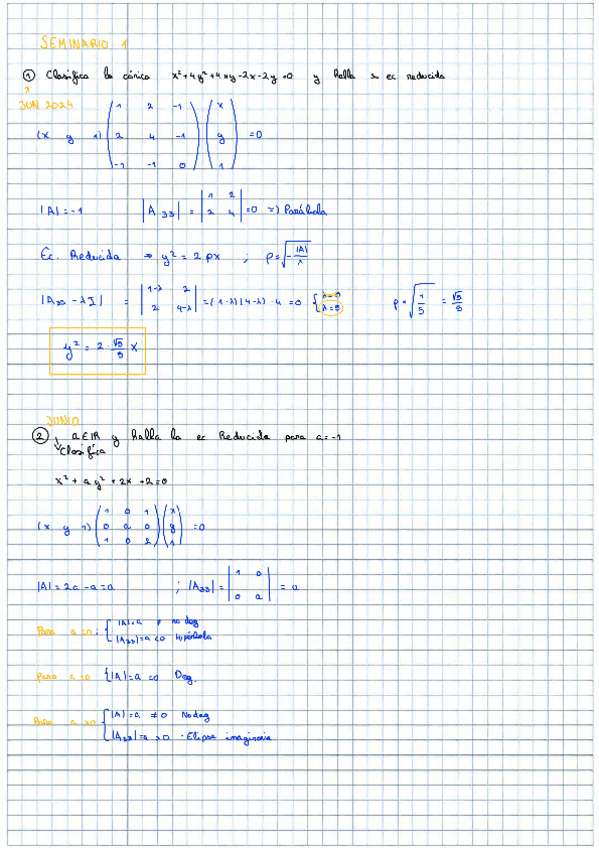 SEMINARIO 1
① Clasifica la cónica x²+4y²+4xy-2x-2y=0 y halla su ec reducida
JUN 2024
(x y 1) (1 2 -1) (x)
(2 4 -1) (y) =0
(-1 -1 0) (1)
|A|=-1 |A₃₃| = |1 2| =0 => Parábola
|2 4|
Ec. Reducida => y² = 2px ; p=√(-|A|/λ)
|A₃₃ - λI| = |1-λ 2| = (1-λ)(4-λ)-4 = 0 {λ=0 p = √(1/5) = √5/5
|2 4-λ| {λ=5
y² = 2·√5/5 x
JUNIO
② a∈ℝ y halla la ec Reducida para a=-1
Clasifica
x² + ay² + 2x +2=0
(x y 1) (1 0 1) (x)
(0 a 0) (y) =0
(1 0 2) (1)
|A| = 2a - a = a ; |A₃₃| = |1 0| = a
|0 a|
Para a<0: {|A|=a ≠ no deg
{|A₃₃|=a<0 hipérbola
Para a=0 {|A|=a=0 Deg.
Para a>0 {|A|=a ≠0 No deg
{|A₃₃|=a >0 - Elipse imaginaria